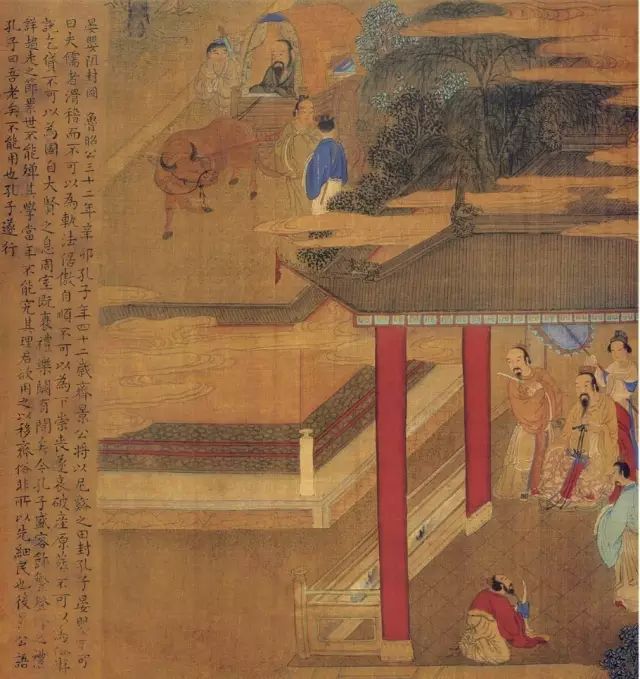 晏嬰阻封圖 魯昭公三十二年辛卯孔子年四十二歲齊景公將以尼谿之田封孔子晏嬰可
曰夫儒者滑稽而不可以為軌法倨傲自順不可以為下崇喪遂哀破產厚葬不可以為俗游
說乞貸不可以為國自大賢之息周室既衰禮樂闕有間矣今孔子盛容飾繁登之禮
詳趨走之節累世不能殫其學當年不能究其理君欲用之以移齊俗非所以先細民也後景公語
孔子曰吾老矣不能用也孔子遂行